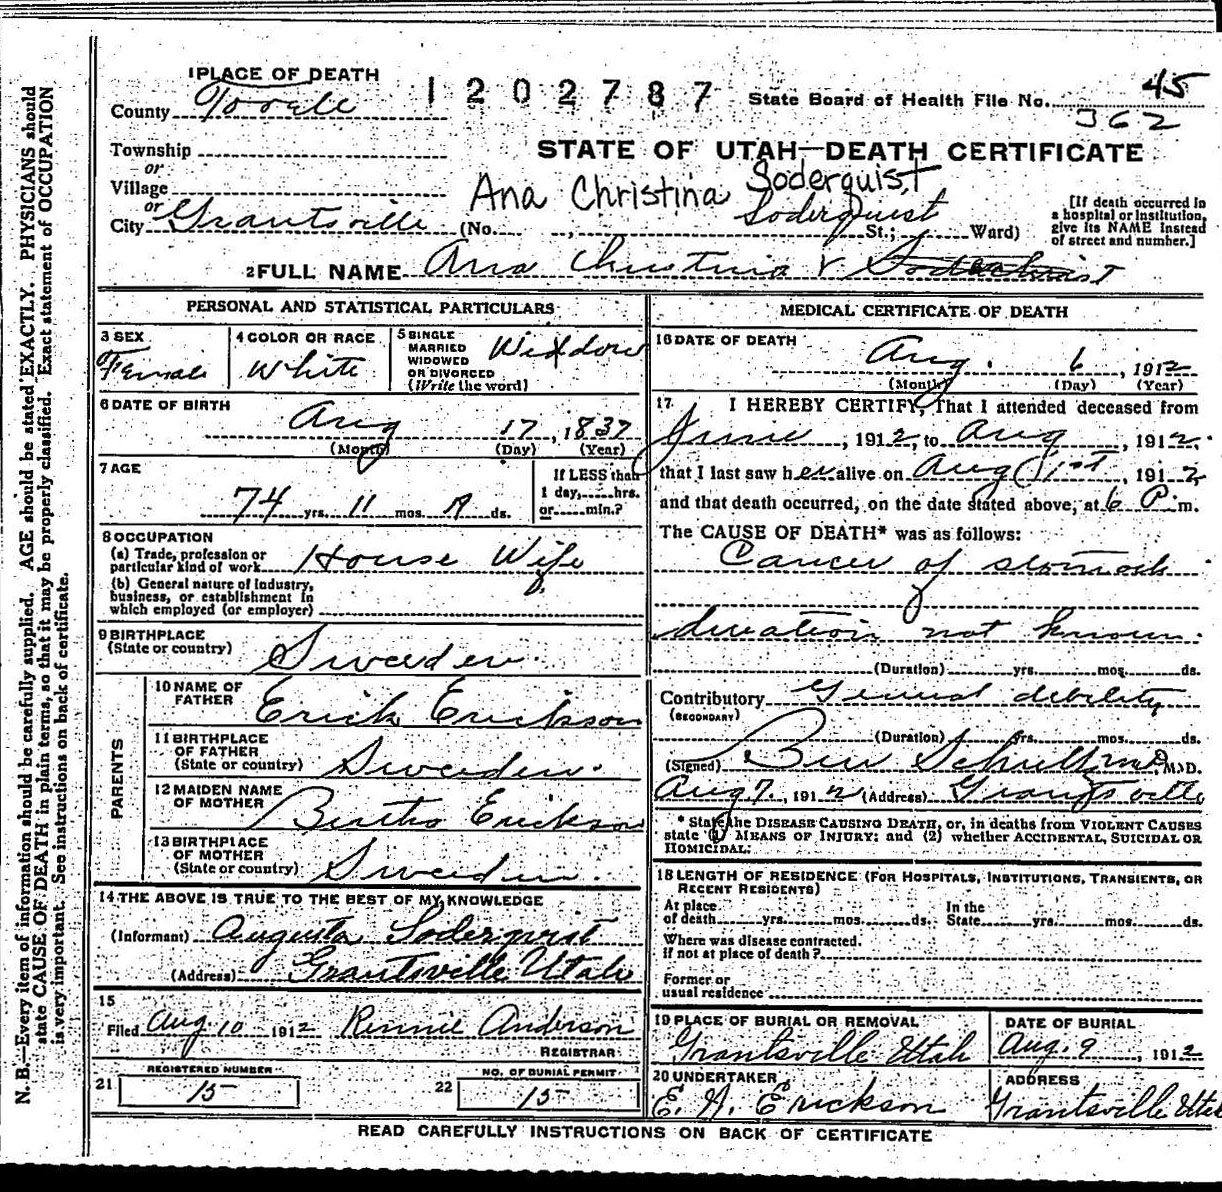 N. B.—Every item of information should be carefully supplied. AGE should be stated EXACTLY. PHYSICIANS should
state CAUSE OF DEATH in plain terms, so that it may be properly classified. Exact statement of OCCUPATION
is very important. See instructions on back of certificate.
1 PLACE OF DEATH
1202787
State Board of Health File No. 45
362
County Tooele
STATE OF UTAH—DEATH CERTIFICATE
Township
or
Village
Ana Christina Soderquist
or
City Grantsville (No. , Soderquist St.; Ward)
[If death occurred in
a hospital or institution,
give its NAME instead
of street and number.]
2 FULL NAME Ana Christina
PERSONAL AND STATISTICAL PARTICULARS
3 SEX Female
4 COLOR OR RACE White
5 SINGLE
MARRIED
WIDOWED
OR DIVORCED
(Write the word)
Widow
6 DATE OF BIRTH
Aug 17, 1837
(Month) (Day) (Year)
7 AGE
74 yrs. 11 mos. ds.
If LESS than
1 day, hrs.
or min.?
8 OCCUPATION
(a) Trade, profession or
particular kind of work House Wife
(b) General nature of Industry,
business, or establishment in
which employed (or employer)
9 BIRTHPLACE
(State or country) Sweaden
PARENTS
10 NAME OF
FATHER Erick Erickson
11 BIRTHPLACE
OF FATHER
(State or country) Sweaden.
12 MAIDEN NAME
OF MOTHER Erickson
13 BIRTHPLACE
OF MOTHER
(State or country) Sweaden.
14 THE ABOVE IS TRUE TO THE BEST OF MY KNOWLEDGE
(Informant) Augusta Soderqvist
(Address) Grantsville Utah
15
Filed Aug 10 1912 Rennie Anderson
REGISTRAR
21
REGISTERED NUMBER
15
22
NO. OF BURIAL PERMIT
15
MEDICAL CERTIFICATE OF DEATH
16 DATE OF DEATH
Aug. 6, 1912
(Month) (Day) (Year)
17 I HEREBY CERTIFY, That I attended deceased from
June, 1912, to Aug, 1912.
that I last saw her alive on Aug 1st, 1912
and that death occurred, on the date stated above, at 6 P. m.
The CAUSE OF DEATH* was as follows:
Cancer of stomach
duration not known.
(Duration) yrs. mos. ds.
Contributory General debility
(SECONDARY)
(Duration) yrs. mos. ds.
(Signed) M.D.
Aug 7, 1912 (Address) Grantsville
* State the DISEASE CAUSING DEATH, or, in deaths from VIOLENT CAUSES
state (1) MEANS OF INJURY; and (2) whether ACCIDENTAL, SUICIDAL OR
HOMICIDAL.
18 LENGTH OF RESIDENCE (FOR HOSPITALS, INSTITUTIONS, TRANSIENTS, OR
RECENT RESIDENTS)
At place
of death yrs. mos. ds.
In the
State yrs. mos. ds.
Where was disease contracted.
if not at place of death?
Former or
usual residence
19 PLACE OF BURIAL OR REMOVAL
Grantsville Utah
DATE OF BURIAL
Aug. 9, 1912
20 UNDERTAKER
Erickson
ADDRESS
Grantsville Utah
READ CAREFULLY INSTRUCTIONS ON BACK OF CERTIFICATE